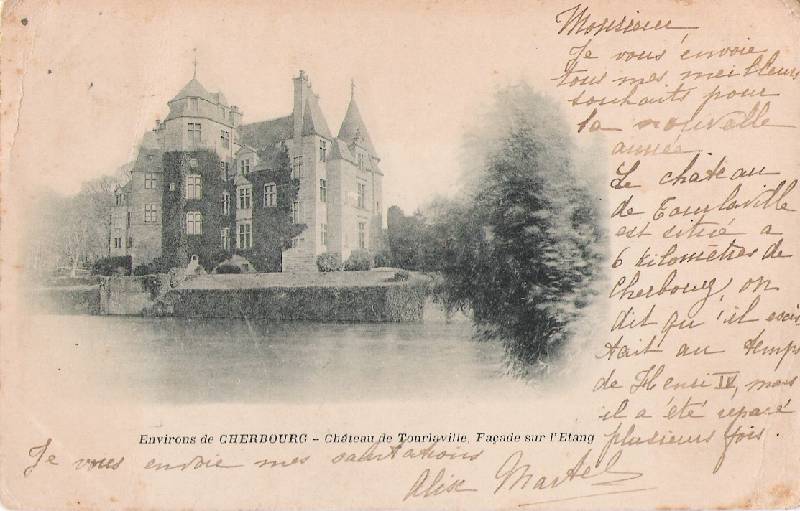 Monsieur
Je vous envoie
tous mes meilleurs
souhaits pour
la nouvelle
année.
Le château
de Tourlaville
est situé a
6 kilomètres de
Cherbourg, on
dit qu'il
était au temps
de Henri IV, mais
il a été reparé
plusieurs fois.
Environs de CHERBOURG - Château de Tourlaville, Façade sur l'Etang
Je vous envoie mes salutations
Alix Martel